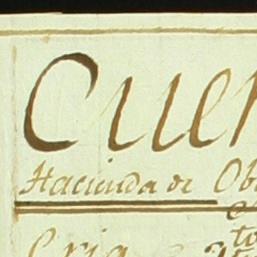 Cuen
Hacienda de Ob
to
Cria